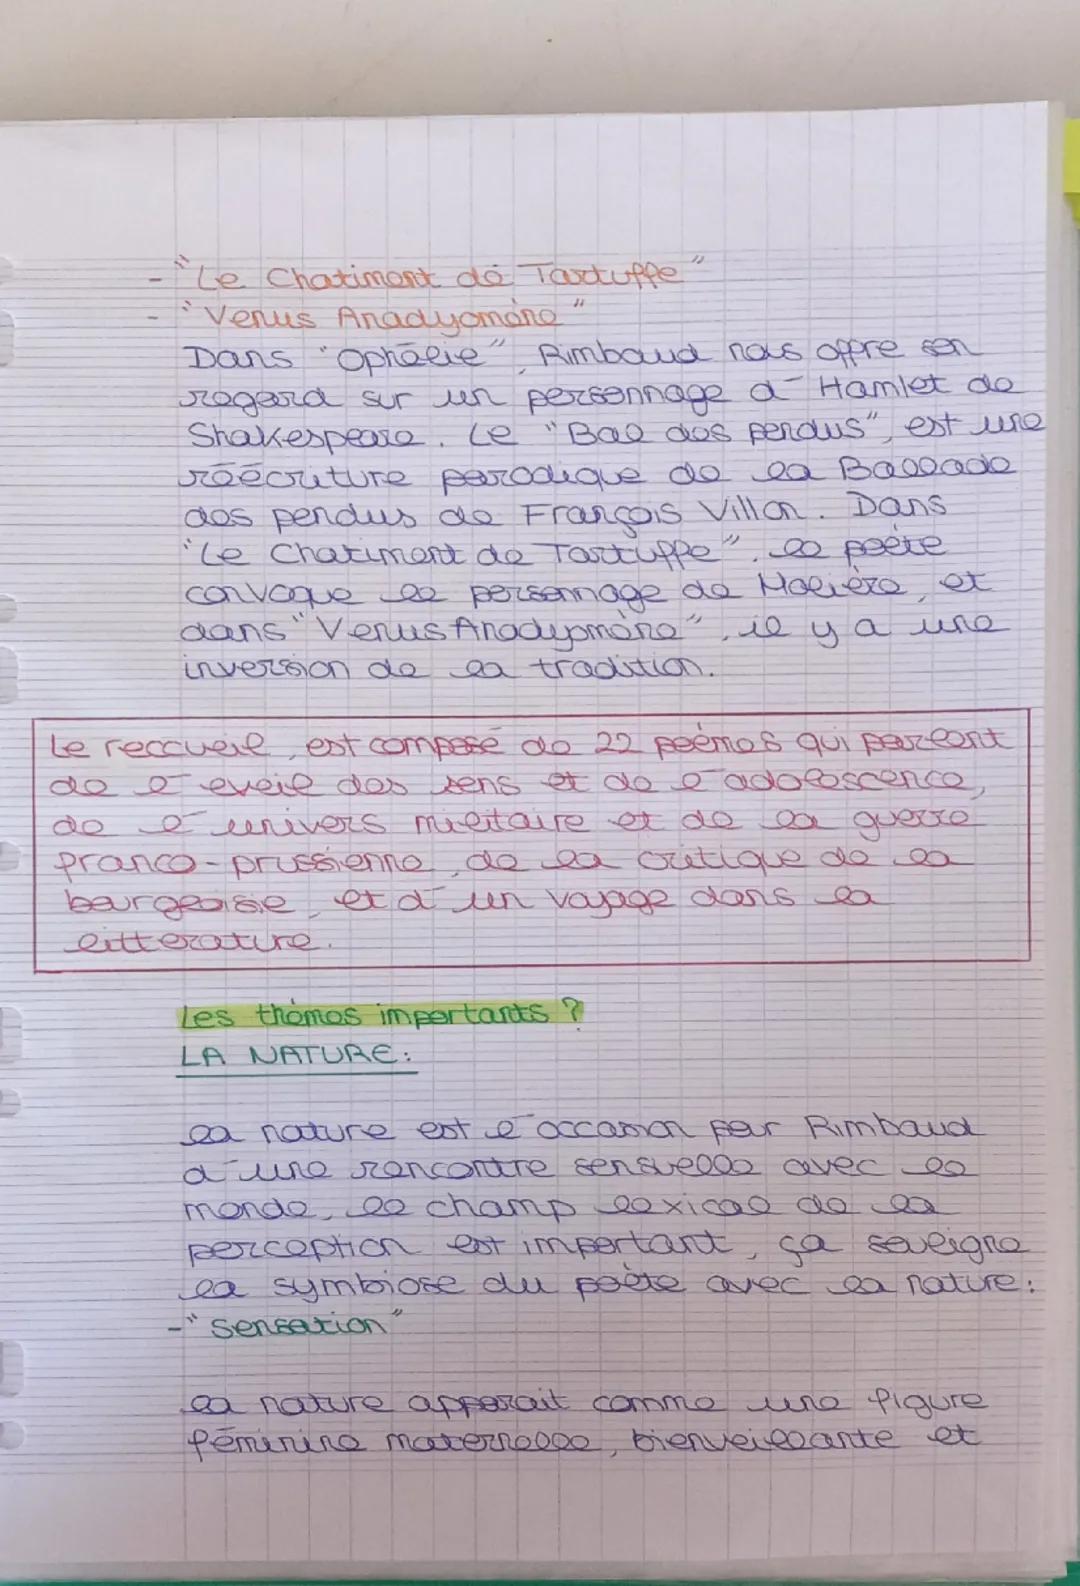 - "Le Chatiment de Tartuffe"
- "Venus Anadyomène"
Dans "Ophélie", Rimbaud nous offre son
regard sur un personnage d'Hamlet de
Shakespeare. Le "Bal des pendus", est une
réécriture parodique de la Ballade
des pendus de François Villon. Dans
"Le Chatiment de Tartuffe", le poète
convoque le personnage de Molière, et
dans "Venus Anadyomène", il y a une
inversion de la tradition.
Le reccueil, est composé de 22 poèmes qui parlent
de l'eveil des sens et de l'adolescence,
de l'univers militaire et de la guerre
franco-prussienne, de la critique de la
bourgeoisie, et d'un voyage dans la
litterature.
Les thèmes importants ?
LA NATURE:
la nature est l'occasion pour Rimbaud
d'une rencontre sensuelle avec le
monde, le champ lexical de la
perception est important, ça souligne
la symbiose du poète avec la nature:
- "Sensation"
la nature apparait comme une figure
féminine maternelle, bienveillante et